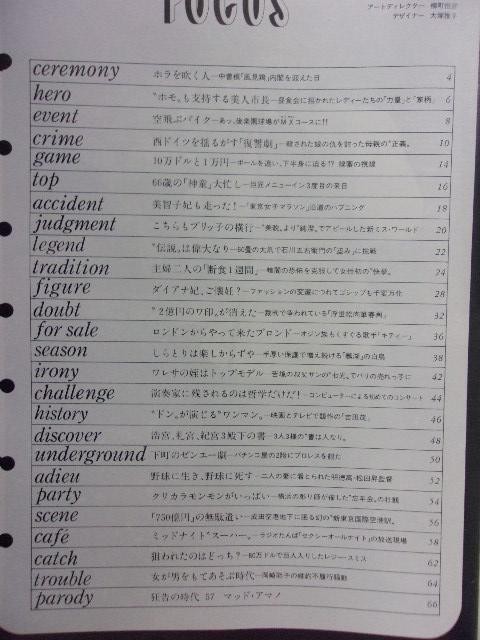 FOCUS
アートディレクター 柳町恒彦
デザイナー 大塚雅子
ceremony ホラを吹く人―中曽根「風見鶏」内閣を迎えた日 4
hero “ホモ”も支持する美人市長―昼食会に招かれたレディーたちの「力量」と「家柄」 6
event 空飛ぶバイク―あッ、後楽園球場がMXコースに!! 8
crime 西ドイツを揺るがす「復讐劇」―殺された娘の仇を討った母親の“正義” 10
game 10万ドルと1万円―ボールを追い、下半身に迫る!? 線審の視線 14
top 66歳の「神童」大忙し―巨匠メニューイン3度目の来日 16
accident 美智子妃も走った!―「東京女子マラソン」沿道のハプニング 18
judgment こちらもブリッ子の横行―“美貌”より“純潔”でアピールした新ミス・ワールド 20
legend “伝説”は偉大なり―60畳の大凧で石川五右衛門の「盗み」に挑戦 22
tradition 主婦二人の「断食1週間」―暗闇の恐怖を克服して女性初の“快挙” 24
figure ダイアナ妃、ご懐妊?―ファッションの変遷につれてゴシップも千変万化 28
doubt “2億円のワ印”が消えた―裁判で争われている「浮世絵肉筆春画」 32
for sale ロンドンからやって来たブロンド―オジン族もくすぐる歌手「キティー」 36
season しらとりは楽しからずや―手厚い保護で増え続ける「瓢湖」の白鳥 38
irony ワレサの姪はトップモデル―苦境の叔父サンの“七光”でパリの売れっ子に 42
challenge 演奏家に残されるのは哲学だけだ!―コンピューターによる初めてのコンサート 44
history “ドン”が演じる“ワンマン”―映画とテレビで競作の「吉田茂」 46
discover 浩宮、礼宮、紀宮3殿下の書―3人3様の“書は人なり” 48
underground 下町のゼンエー劇―パチンコ屋の2階にプロレスを観た 50
adieu 野球に生き、野球に死す―二人の妻に看とられた明徳高・松田昇監督 52
party クリカラモンモンがいっぱい―横浜の彫り師が催した“忘年会”の壮観 54
scene 「750億円」の無駄遣い―成田空港地下に眠る幻の“新東京国際空港駅” 56
café ミッドナイト“スーパー”―ラジオたんぱ「セクシーオールナイト」の放送現場 58
catch 狙われたのはどっち?―60万ドルで巨人入りしたレジー・スミス 62
trouble 女が男をもてあそぶ時代―岡崎聡子の婚約不履行騒動 64
parody 狂告の時代 57 マッド・アマノ 66